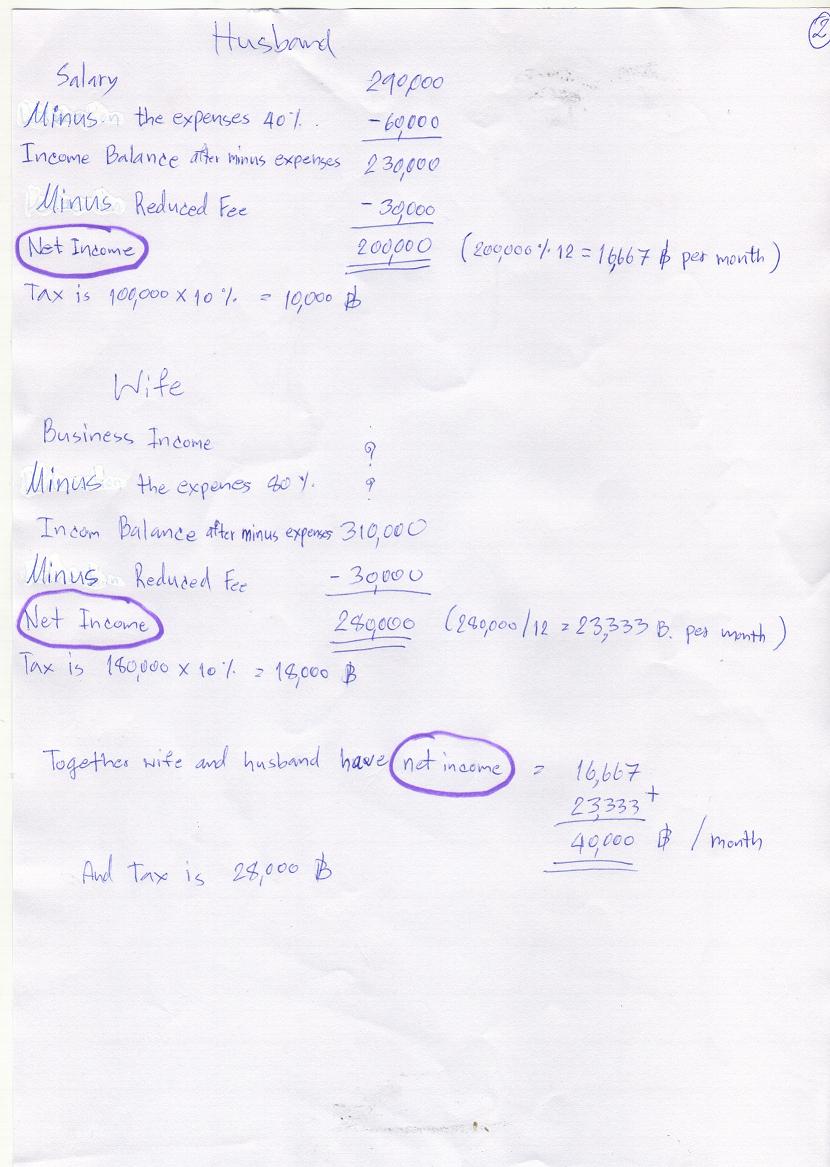 2
Husband
Salary 290,000
Minus the expenses 40% -60,000
Income Balance after minus expenses 230,000
Minus Reduced Fee -30,000
Net Income 200,000 (200,000 % 12 = 16,667 ฿ per month)
Tax is 100,000 x 10% = 10,000 ฿
Wife
Business Income ?
Minus the expenes 80% ?
Incom Balance after minus expenses 310,000
Minus Reduced Fee - 30,000
Net Income 280,000 (280,000/12 = 23,333 B. per month)
Tax is 180,000 x 10% = 18,000 ฿
Together wife and husband have net income = 16,667
23,333 +
40,000 ฿ / month
And Tax is 28,000 ฿